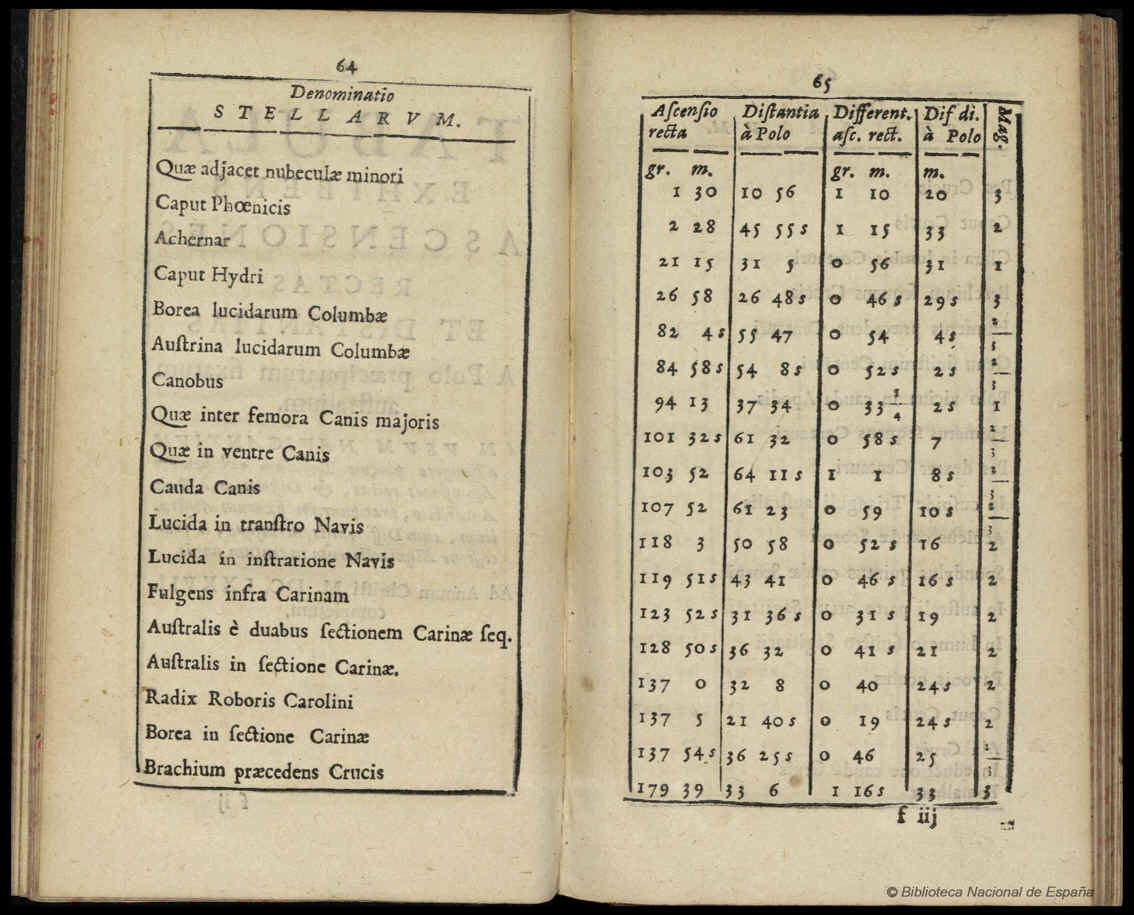 64
Denominatio
STELLARVM.
Quæ adjacet nubeculæ minori
Caput Phœnicis
Achernar
Caput Hydri
Borea lucidarum Columbæ
Auſtrina lucidarum Columbæ
Canobus
Quæ inter femora Canis majoris
Quæ in ventre Canis
Cauda Canis
Lucida in tranſtro Navis
Lucida in inſtratione Navis
Fulgens infra Carinam
Auſtralis è duabus ſectionem Carinæ ſeq.
Auſtralis in ſectione Carinæ.
Radix Roboris Carolini
Borea in ſectione Carinæ
Brachium præcedens Crucis
65
Aſcenſio recta Diſtantia à Polo Different. aſc. rect. Dif di. à Polo Mag.
gr. m. gr. m. m.
1 30 10 56 1 10 20 3
2 28 45 55 s 1 15 33 2
21 15 31 5 0 56 31 1
26 58 26 48 s 0 46 s 29 s 3
82 4 s 55 47 0 54 4 s 2/3
84 58 s 54 8 s 0 52 s 2 s 2/3
94 13 37 34 0 33 3/4 2 s 1
101 32 s 61 32 0 58 s 7 2/3
103 52 64 11 s 1 1 8 s 2/3
107 52 61 23 0 59 10 s 2/3
118 3 50 58 0 52 s 16 2
119 51 s 43 41 0 46 s 16 s 2
123 52 s 31 36 s 0 31 s 19 2
128 50 s 36 32 0 41 s 21 2
137 0 32 8 0 40 24 s 2
137 5 21 40 s 0 19 24 s 2
137 54 s 36 25 s 0 46 25 2/3
179 39 33 6 1 16 s 33 3
f iij
© Biblioteca Nacional de España